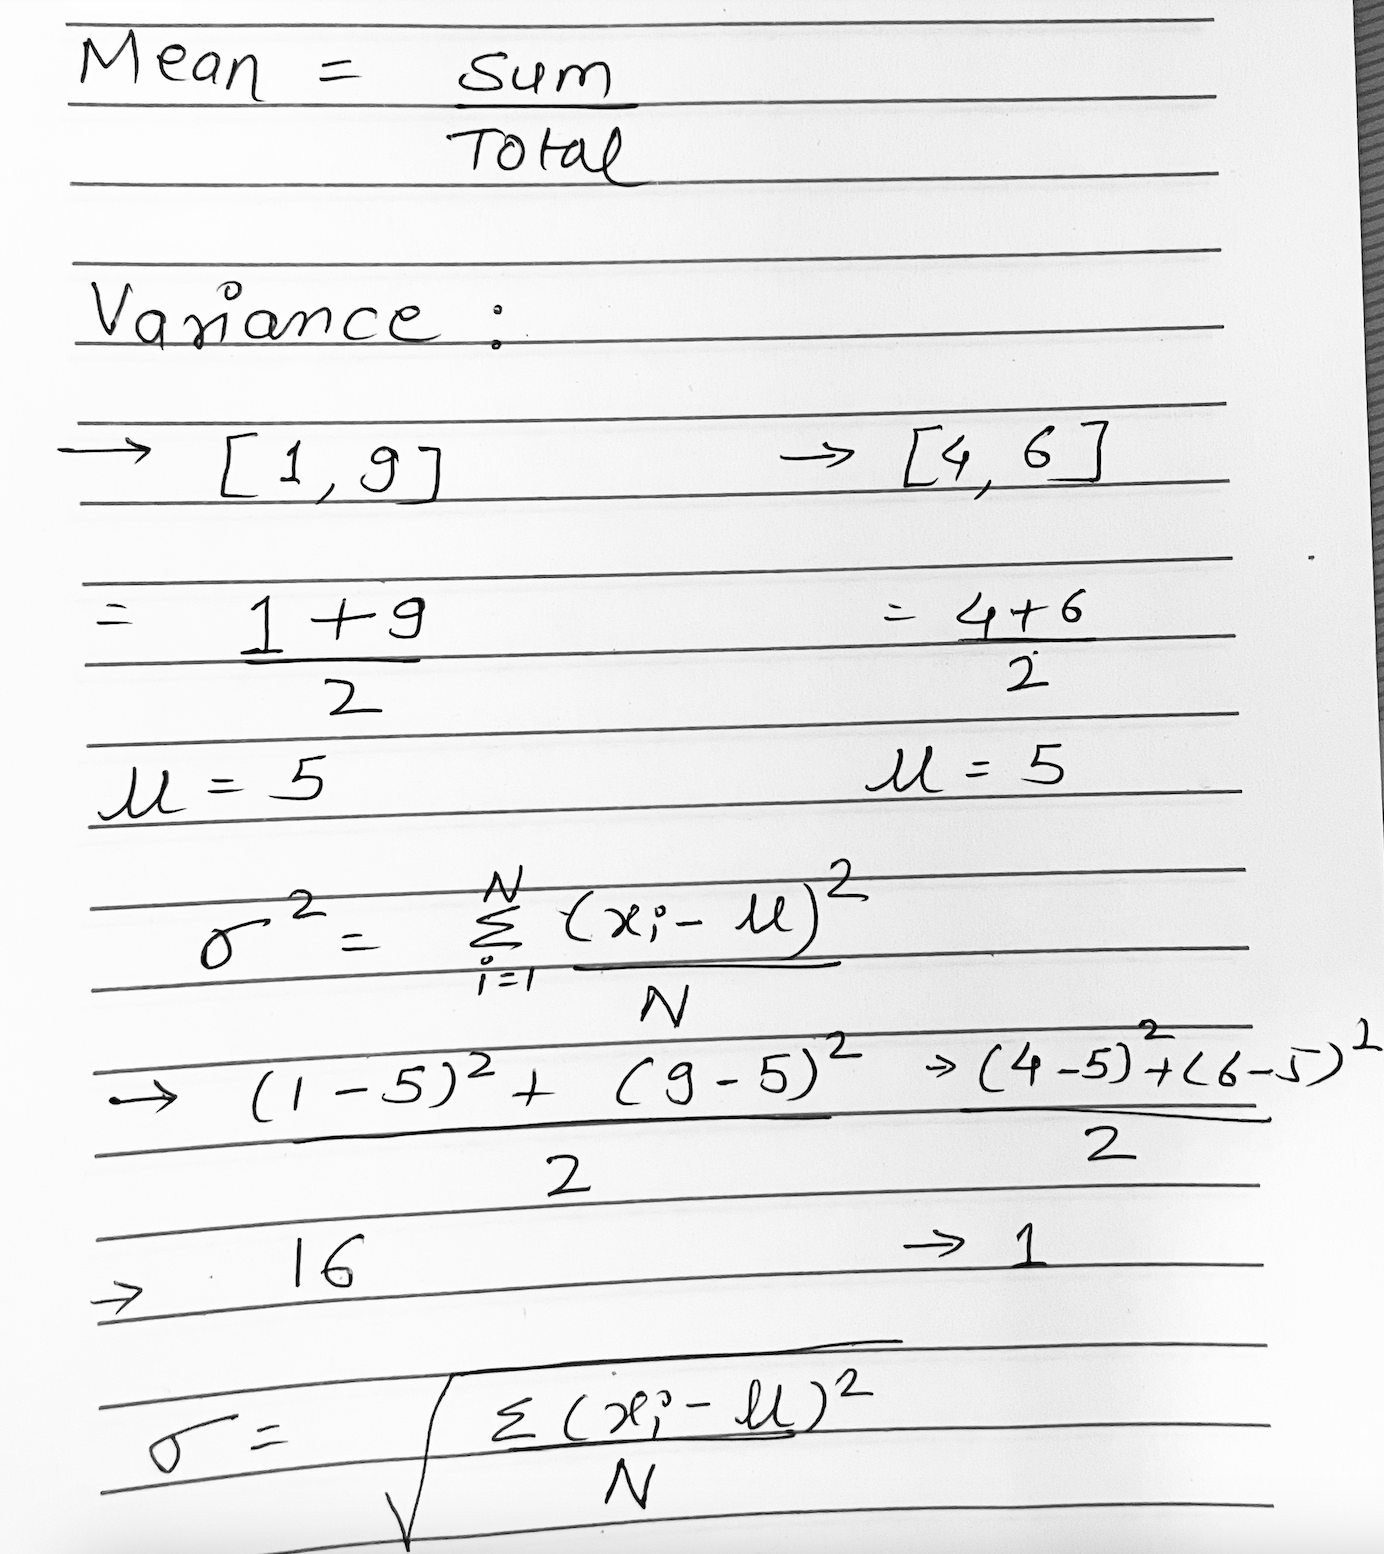 Mean = Sum / Total
Variance :
→ [1, 9] → [4, 6]
= 1 + 9 / 2 = 4+6 / 2
μ = 5 μ = 5
σ² = Σ_{i=1}^{N} (xᵢ - μ)² / N
→ (1 - 5)² + (9 - 5)² / 2 → (4-5)² + (6-5)² / 2
→ 16 → 1
σ = √(Σ (xᵢ - μ)² / N)